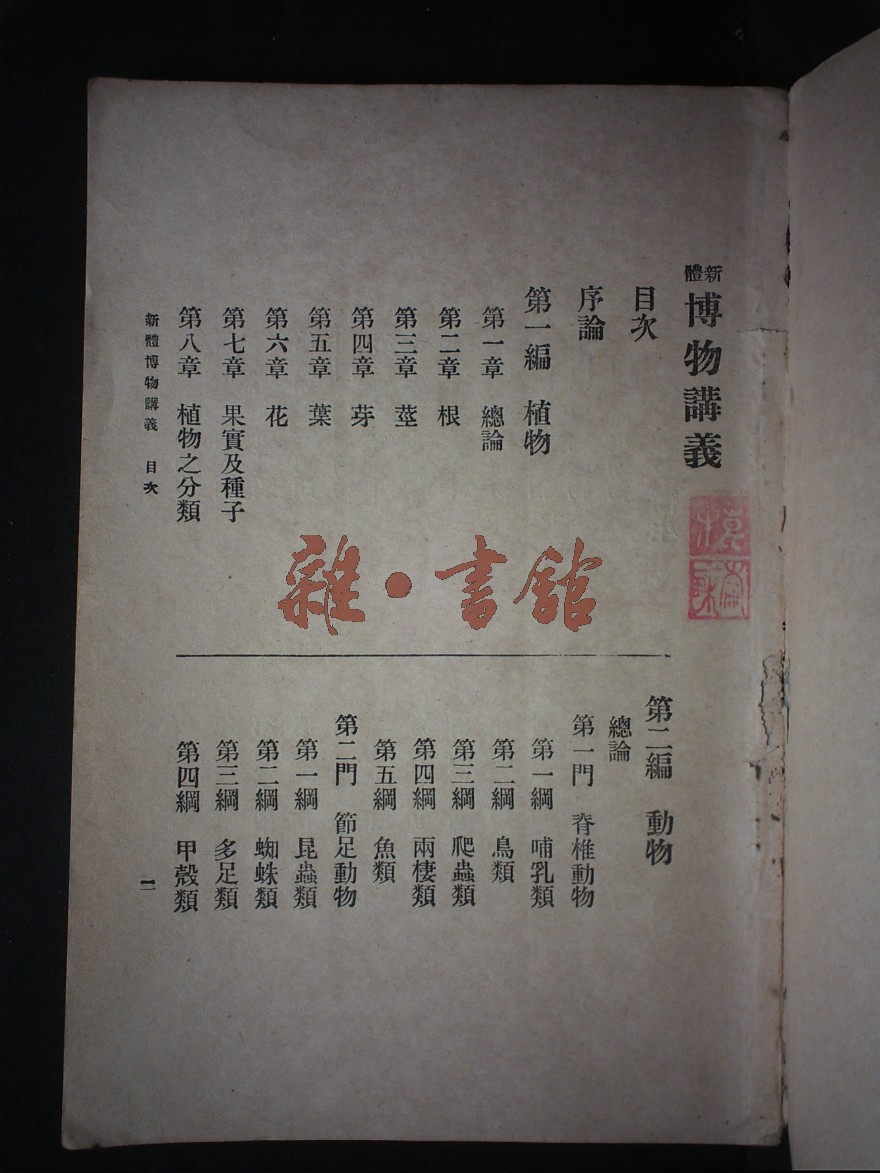 新體博物講義
目次
序論
第一編　植物
第一章　總論
第二章　根
第三章　莖
第四章　芽
第五章　葉
第六章　花
第七章　果實及種子
第八章　植物之分類
第二編　動物
總論
第一門　脊椎動物
第一綱　哺乳類
第二綱　鳥類
第三綱　爬蟲類
第四綱　兩棲類
第五綱　魚類
第二門　節足動物
第一綱　昆蟲類
第二綱　蜘蛛類
第三綱　多足類
第四綱　甲殼類
新體博物講義　目次
一
雜·書館